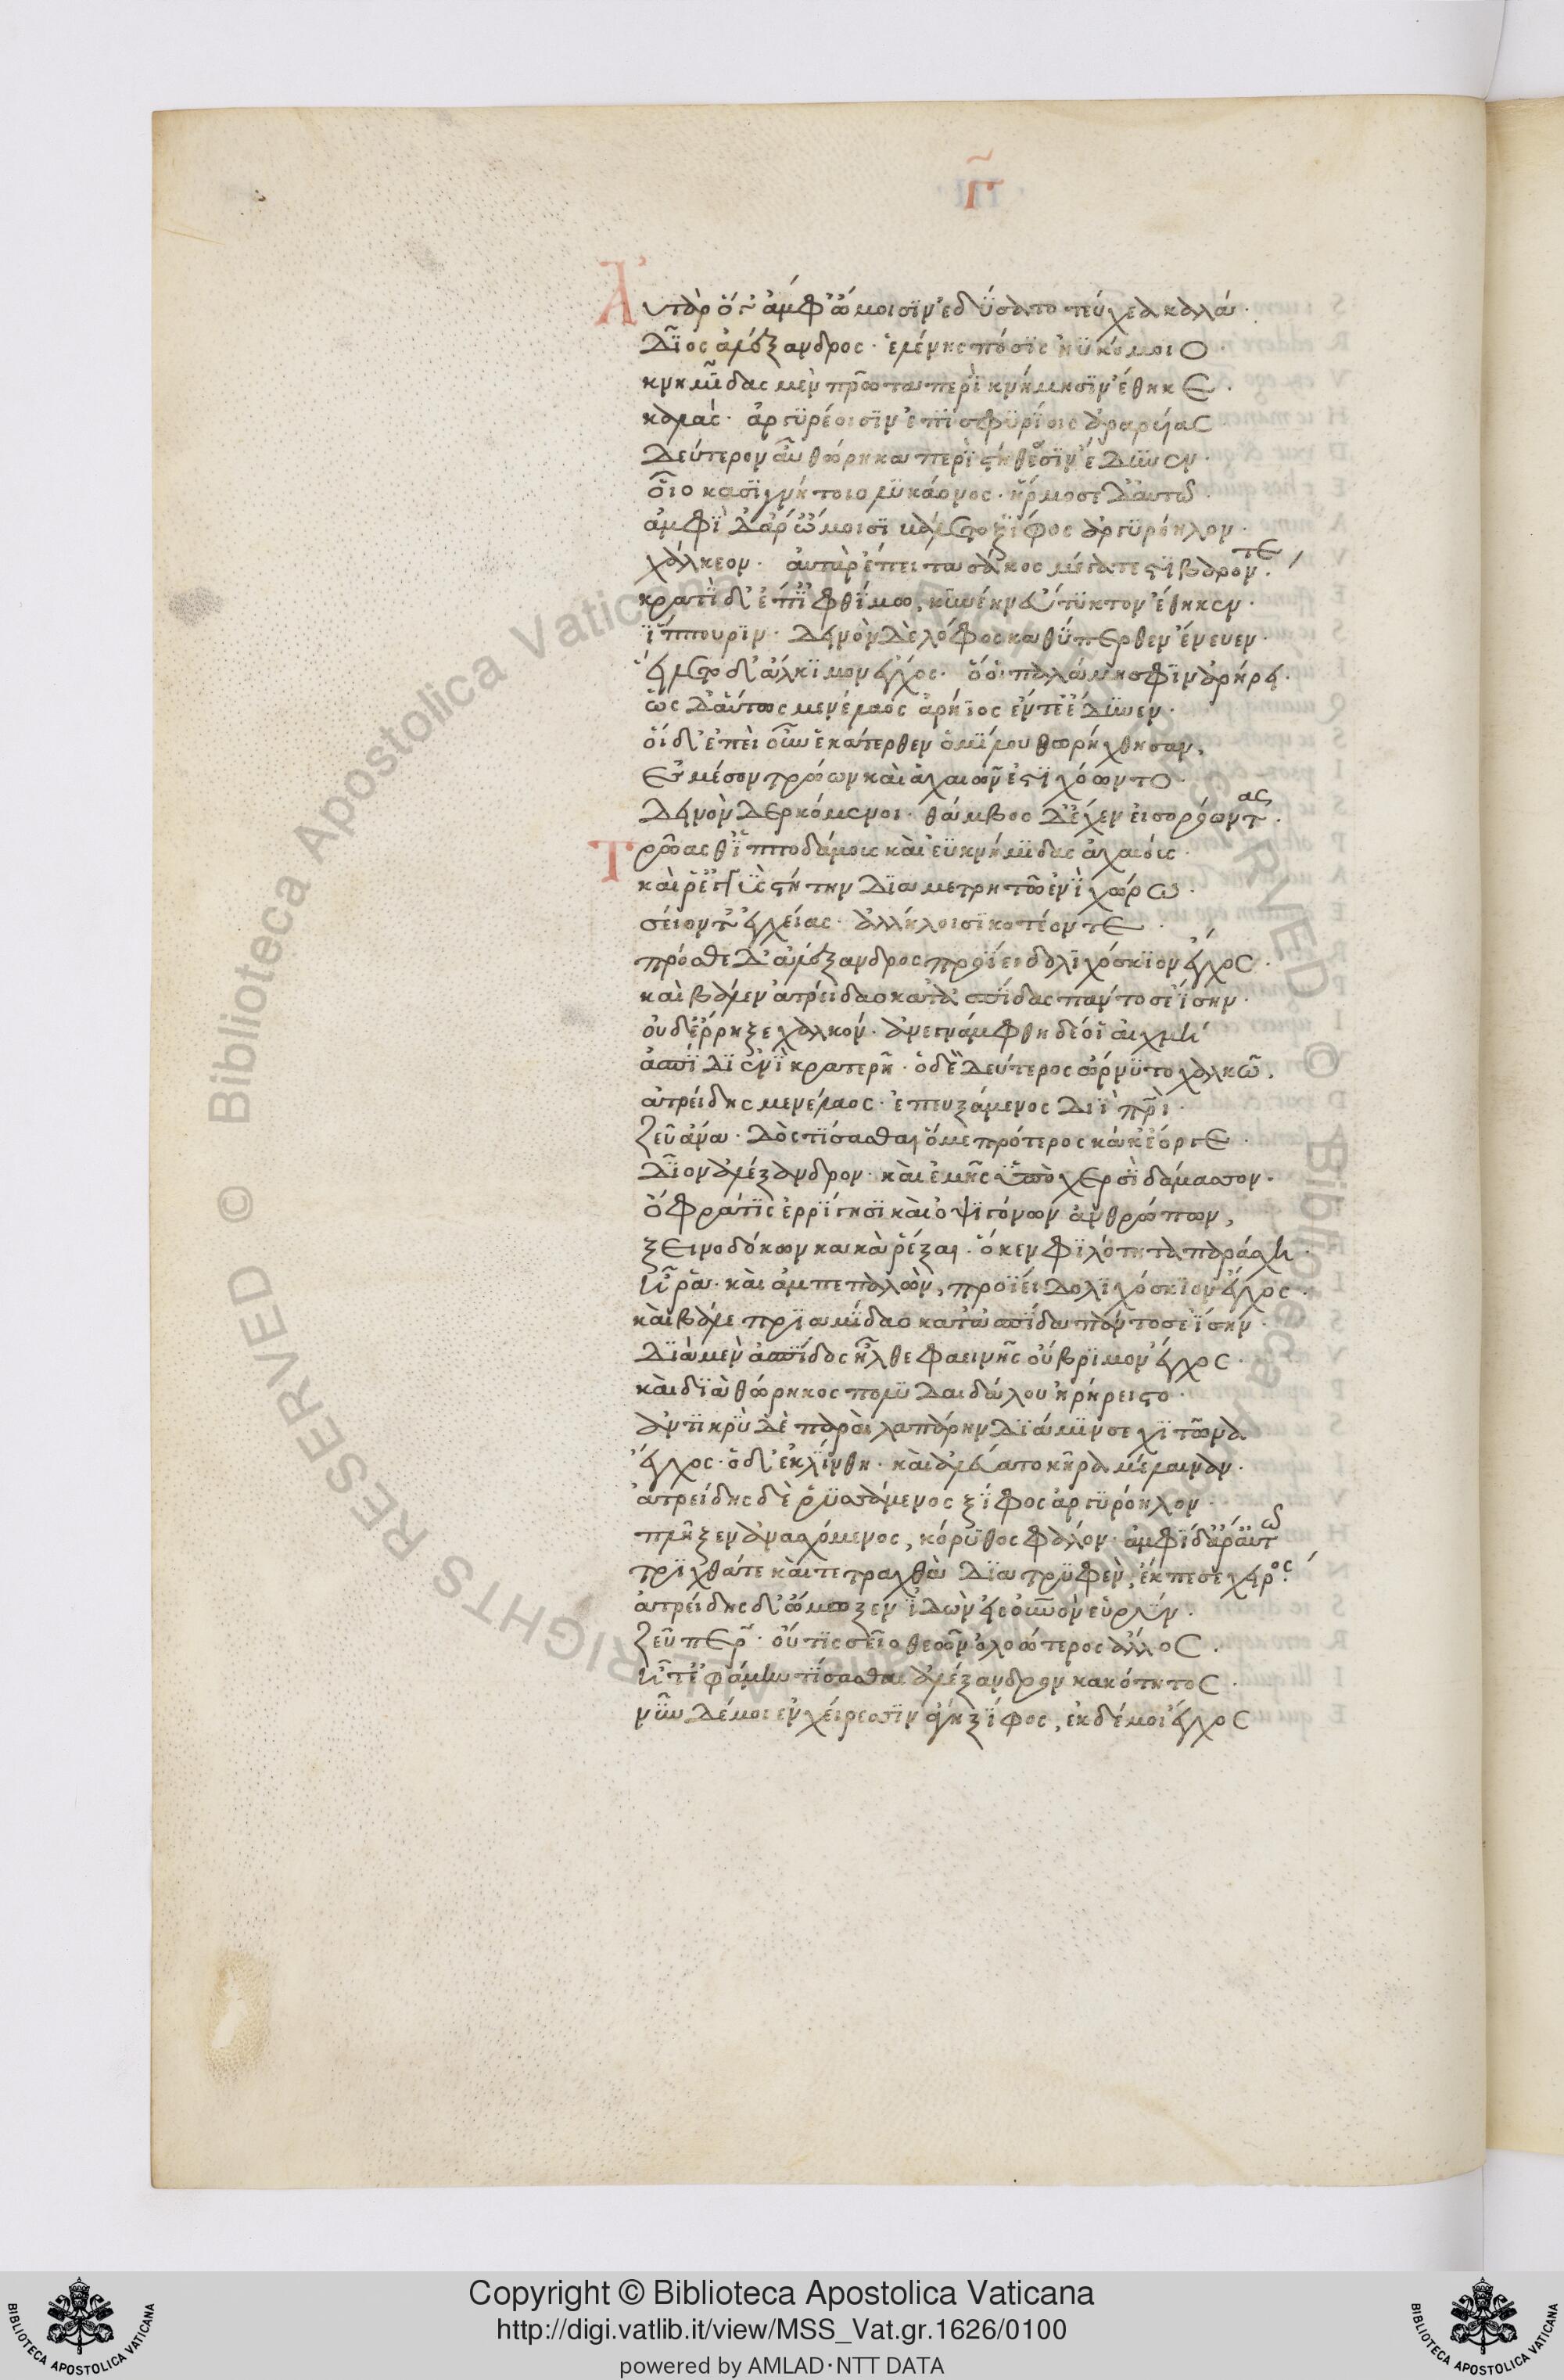 γ̃
Αὐτὰρ ὅγ' ἀμφ' ὤμοισϊν ἐδϋσατο τεύχεα καλά·
Δῖος ἀλέξανδρος· ἑλένης πόσϊς ἠϋκόμοιο·
κνημῖδας μὲν πρῶτα περὶ κνήμησϊν ἔθηκε·
καλάς· ἀργϋρέοισϊν ἐπϊσφϋρΐοις ἀραρυίας
Δεύτερον αὖ θώρηκα περὶ στήθεσϊν ἔδϋνεν·
οἷο κασϊγνήτοιο λϋκάονος· ἥρμοσε δ' αὐτῶ·
ἀμφῒ δ' ἄρ' ὤμοισϊ βάλετο ξΐφος ἀργϋρόηλον·
χάλκεον· αὐτὰρ ἔπειτα σάκος μέγα τε στϊβαρόν τε·
κρατῒ δ' ἐπ' ἰφθΐμω, κϋνέην εὔτϋκτον ἔθηκεν·
ἵππουρϊν· δεινὸν δὲ λόφος καθΰπερθεν ἔνευεν·
εἵλετο δ' ἄλκϊμον ἔγχος· ὅ οἱ παλάμηφϊν ἀρήρει·
ὣς δ' αὔτως μενέλαος ἀρήϊος ἔντε' ἔδϋνεν·
οἱ δ' ἐπεὶ οὖν ἑκάτερθεν ὁμΐλου θωρήχθησαν,
ἐς μέσον τρώων καὶ ἀχαιῶν ἐστϊχόωντο·
Δεινὸν δερκόμενοι· θάμβος δ' ἔχεν εἰσορόωντας·
Τρῶας θ' ἱπποδάμους καὶ ἐϋκνήμϊδας ἀχαιούς·
καί ῥ' ἐγγὺς στήτην δϊαμετρητῶ ἐνῒ χώρω·
σείοντ' ἐγχείας· ἀλλήλοισϊ κοτέοντε·
πρόσθε δ' ἀλέξανδρος προΐει δολϊχόσκϊον ἔγχος·
καὶ βάλεν ἀτρείδαο κατ' ἀσπίδας πάντοσ' ἐΐσην·
οὐδ' ἔρρηξε χαλκόν· ἀνεγνάμφθη δέ οἱ αἰχμὴ
ἀσπΐδϊ ἐνῒ κρατερῆ· ὁ δὲ δεύτερος ὤρνϋτο χαλκῶ,
ἀτρείδης μενέλαος· ἐπευξάμενος Δϊῒ πρὶ·
Ζεῦ ἄνα· δὸς τΐσασθαι ὅ με πρότερος κάκ' ἔοργε·
Δῖον ἀλέξανδρον· καὶ ἐμῆς ὑπὸ χερσὶ δάμασσον·
ὄφρα τϊς ἐρρΐγησϊ καὶ ὀψϊγόνων ἀνθρώπων,
ξεινοδόκων κακὰ ῥέξαι· ὅ κεν φϊλότητα παράσχη·
ἦ ῥα· καὶ ἀμπεπαλὼν, προΐει δολϊχόσκϊον ἔγχος·
καὶ βάλε πρϊαμΐδαο κατ' ἀσπίδα πάντοσ' ἐΐσην·
Δϊὰ μὲν ἀσπΐδος ἦλθε φαεινῆς ὄβρϊμον ἔγχος·
καὶ δϊὰ θώρηκος πολϋδαιδάλου ἠρήρειστο·
ἀντϊκρὺ δὲ παραὶ λαπάρην δϊάμϋνσε χϊτῶνα
ἔγχος· ὁ δ' ἐκλΐνθη· καὶ ἀλεύατο κῆρα μέλαιναν·
ἀτρείδης δὲ ἐρϋσσάμενος ξΐφος ἀργϋρόηλον·
πλῆξεν ἀνασχόμενος, κόρϋθος φάλον· ἀμφῒ δ' ἄρ' αὐτῶ
τρϊχθά τε καὶ τετραχθὰ δϊατρϋφὲν, ἔκπεσε χειρός·
ἀτρείδης δ' ὤμωξεν ἰδὼν εἰς οὐρανὸν εὐρΰν·
Ζεῦ περ· οὔτϊς σεῖο θεῶν ὀλοώτερος ἄλλος·
ἦ τ' ἐφάμην τΐσασθαι ἀλέξανδρον κακότητος·
νῦν δέ μοι ἐν χείρεσσϊν ἄγη ξΐφος, ἐκ δέ μοι ἔγχος
Copyright © Biblioteca Apostolica Vaticana
http://digi.vatlib.it/view/MSS_Vat.gr.1626/0100
powered by AMLAD·NTT DATA